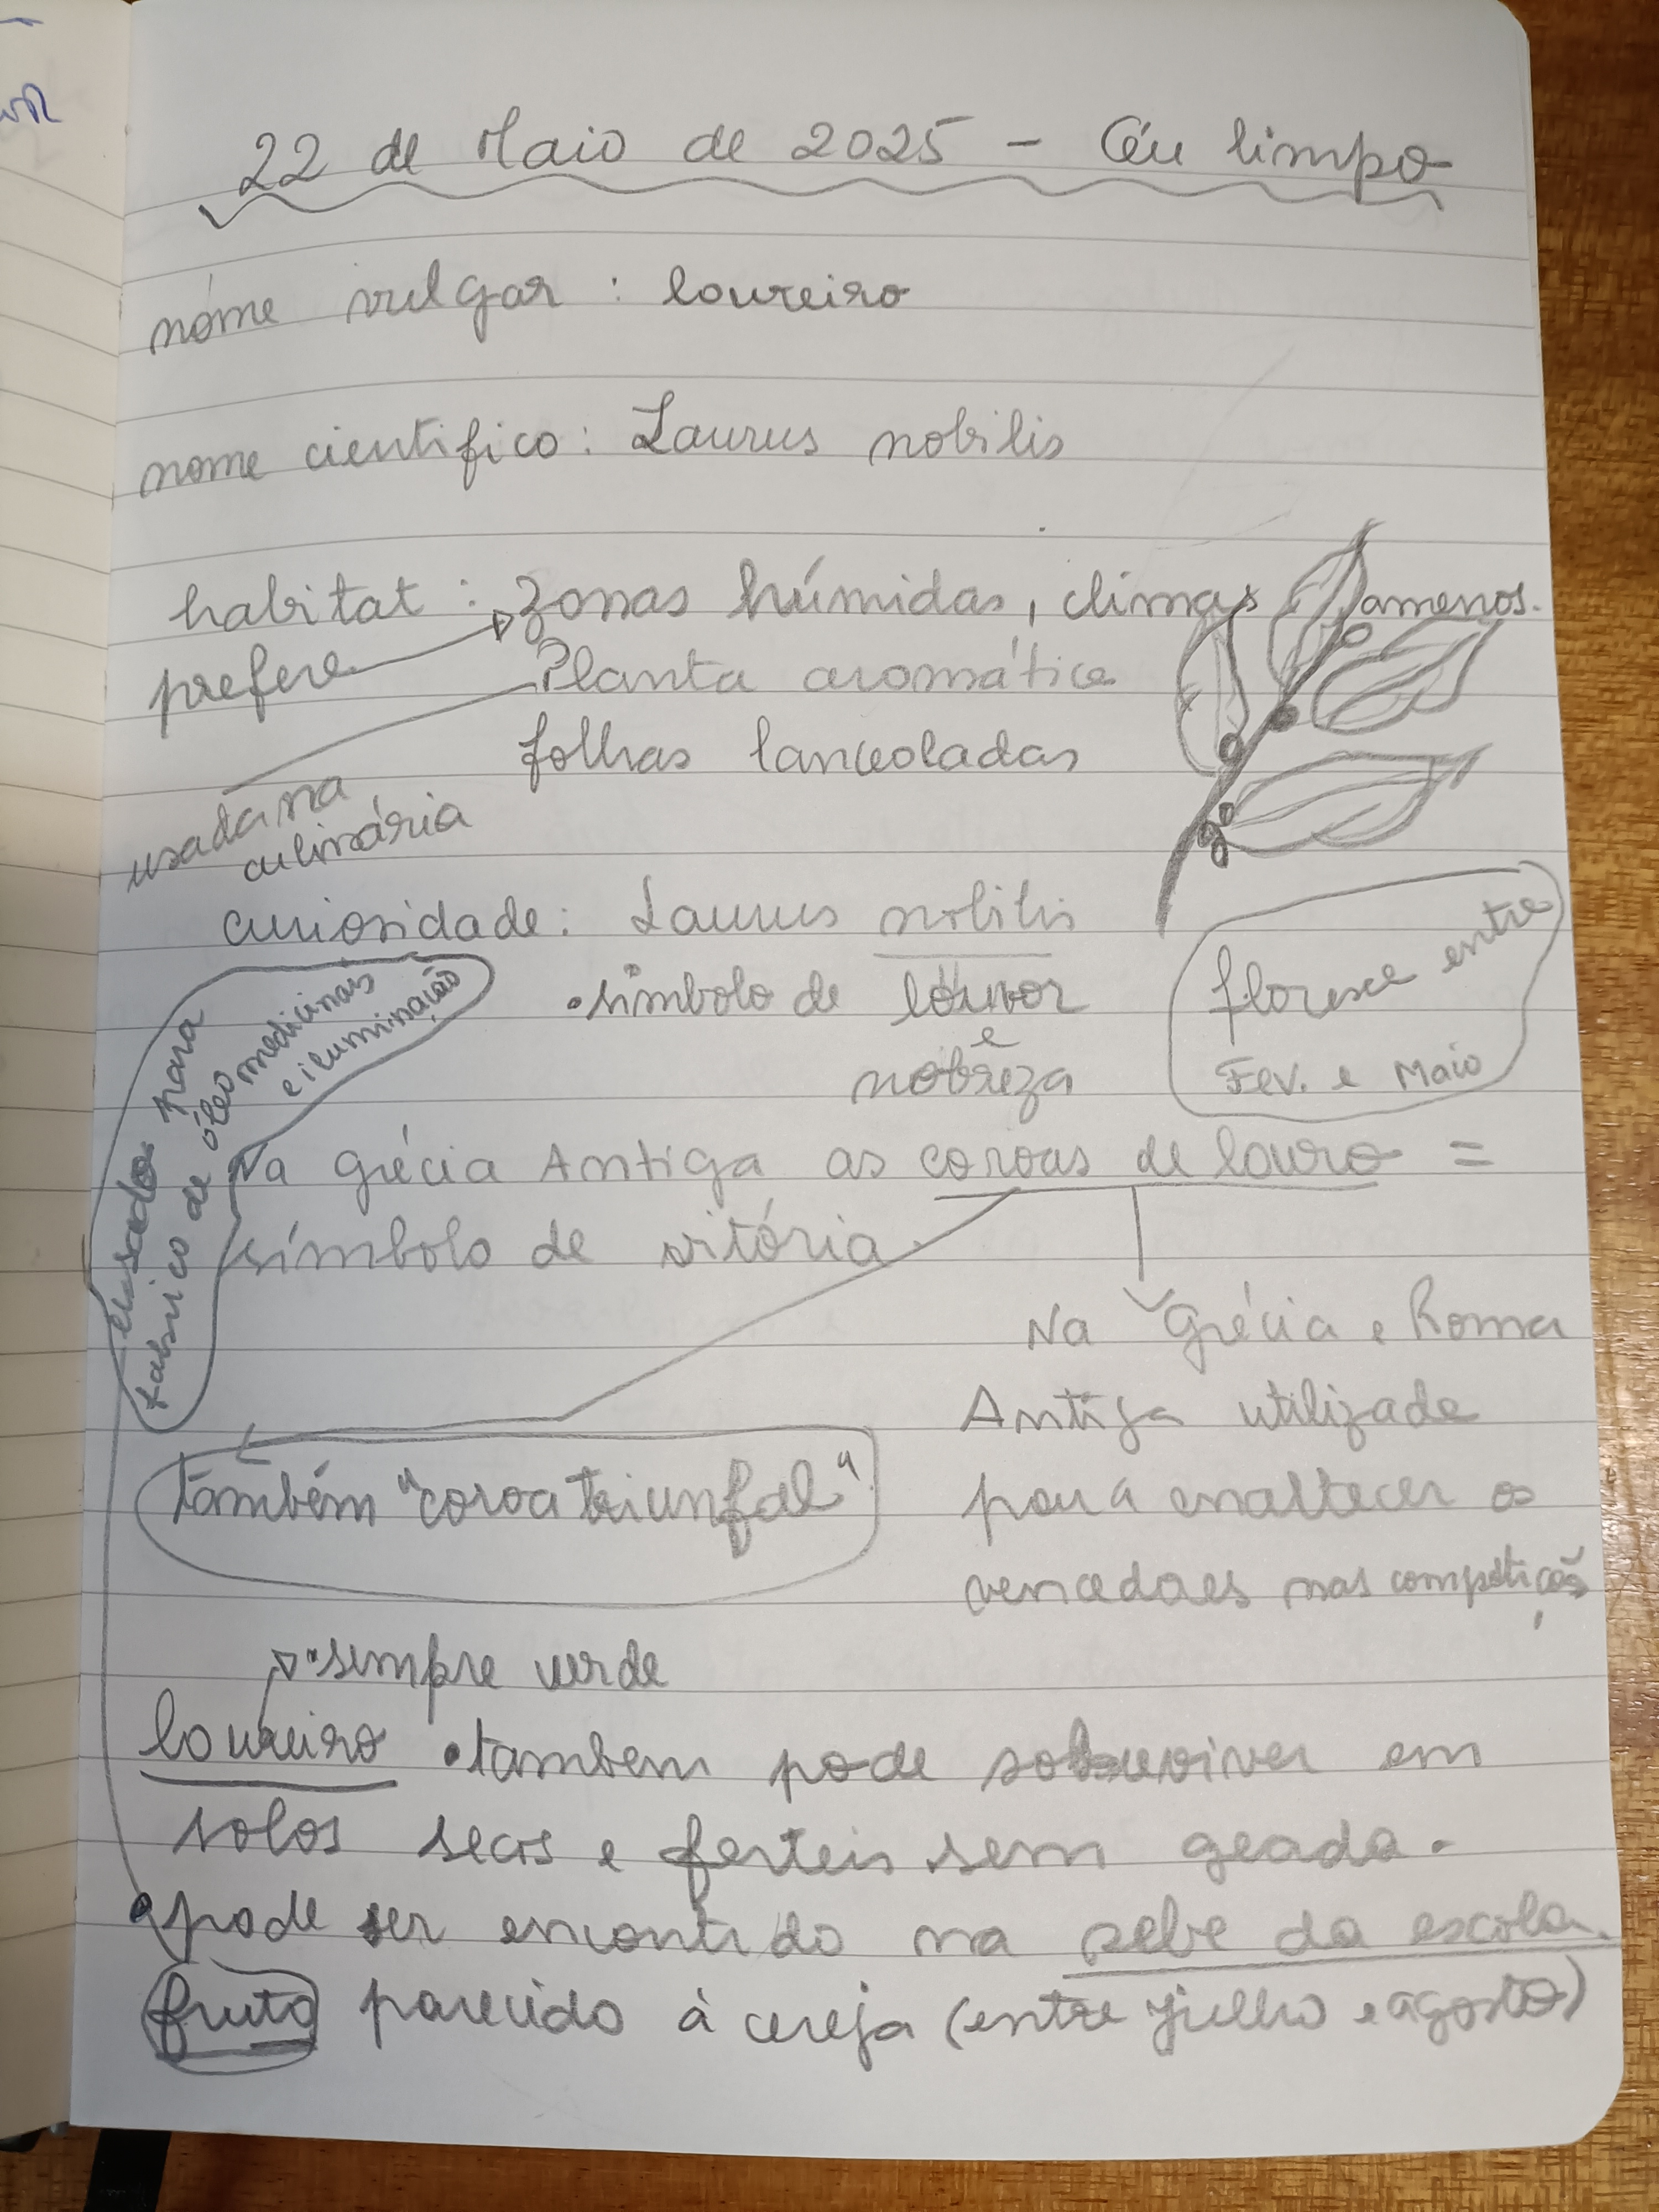 22 de Maio de 2025 - Céu limpo
nome vulgar : loureiro
nome cientifico: Laurus nobilis
habitat : zonas húmidas, climas amenos.
prefere
Planta aromática
folhas lanceoladas
usada na
culinária
curiosidade: Laurus nobilis
• símbolo de louvor
e
nobreza
floresce entre
Fev. e Maio
usados para
fabrico de óleo medicinais
e iluminação
Na Grécia Antiga as coroas de louro =
símbolo de vitória.
Na Grécia e Roma
Antiga utilizada
para enaltecer os
vencedoes nas competição
também "coroa triunfal"
• sempre verde
loureiro • tambem pode sobreviver em
solos secos e ferteis sem geada.
pode ser encontrdo na sebe da escola.
fruto parecido à cereja (entre julho e agosto)